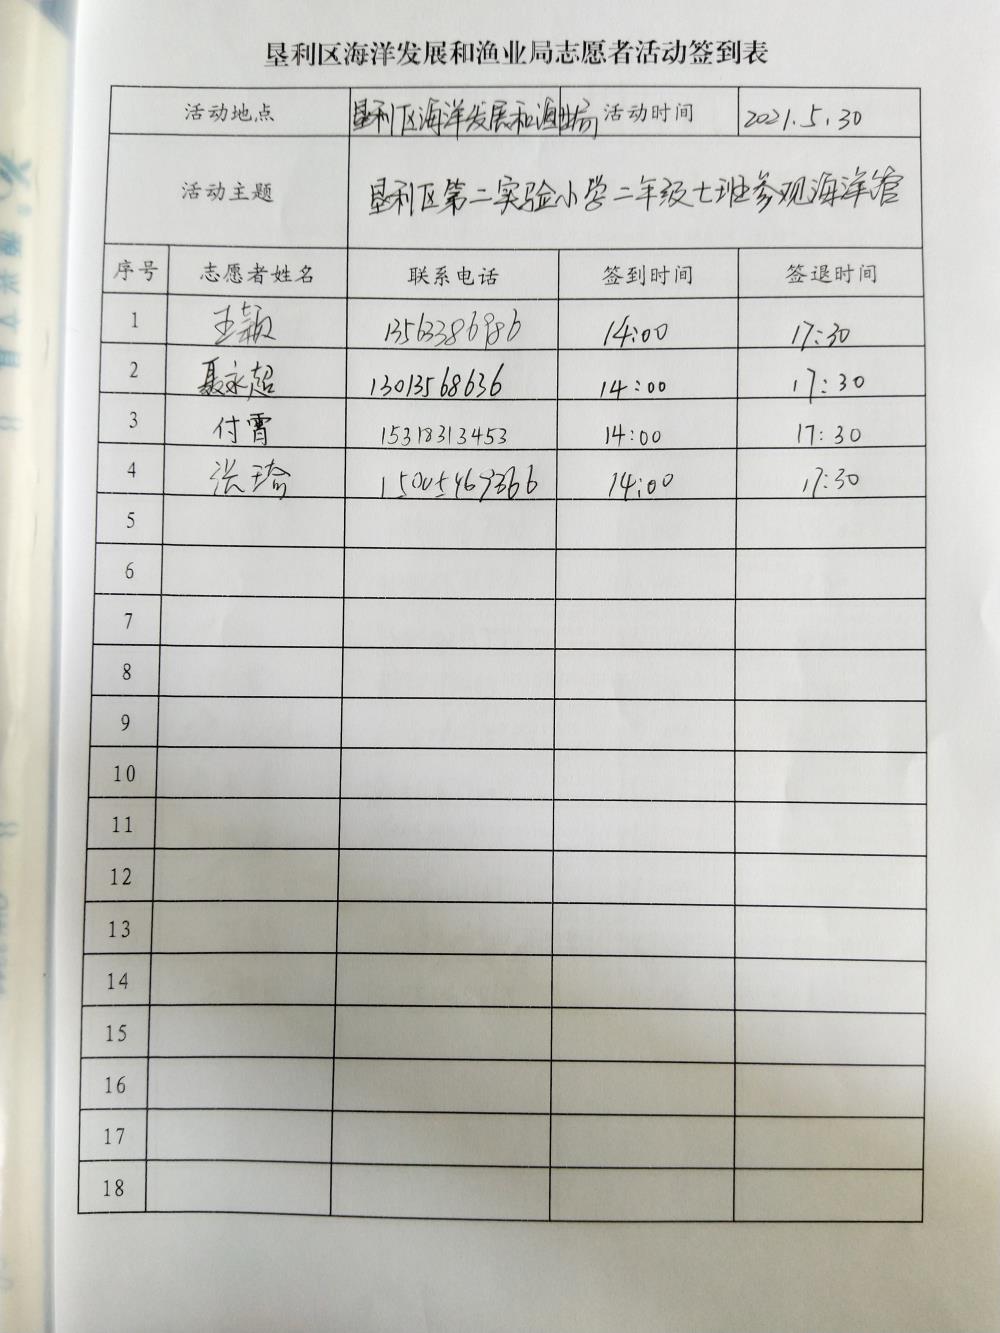 垦利区海洋发展和渔业局志愿者活动签到表
活动地点 垦利区海洋发展和渔业局 活动时间 2021.5.30
活动主题 垦利区第二实验小学二年级七班参观海洋馆
序号 志愿者姓名 联系电话 签到时间 签退时间
1 王颖 13563386986 14:00 17:30
2 聂永超 13013568636 14:00 17:30
3 付霄 15318313453 14:00 17:30
4 张琦 15005469366 14:00 17:30
5
6
7
8
9
10
11
12
13
14
15
16
17
18